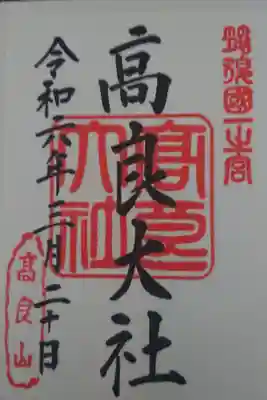 筑後國一之宮
高良大社
高良大社
令和六年三月二十日
高良山